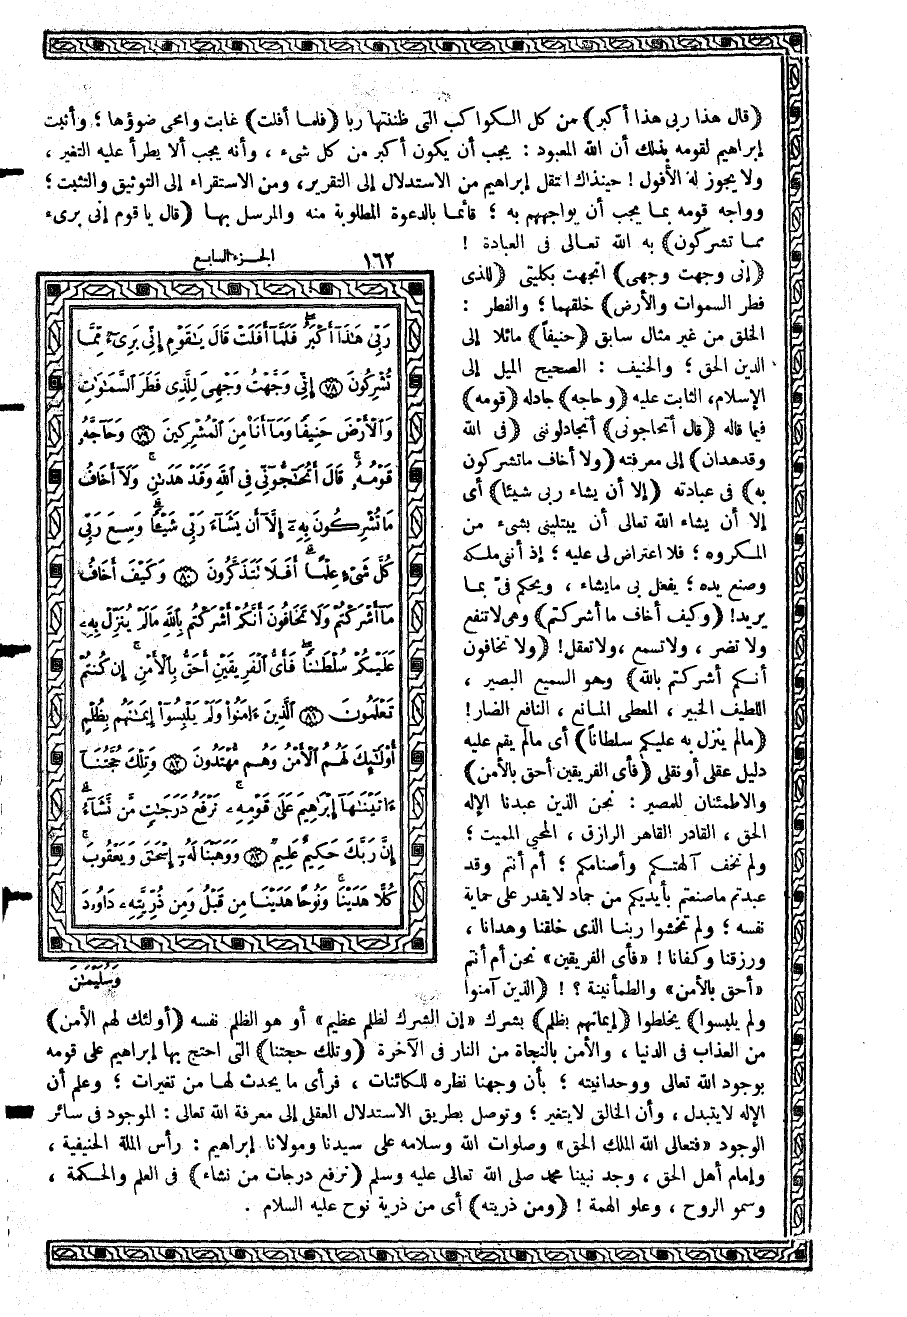 (قال هذا ربى هذا أكبر) من كل الكواكب التى ظننتها ربا (فلما أفلت) غابت وامحى ضوؤها ؛ وأثبت
إبراهيم لقومه بذلك أن الله المعبود : يجب أن يكون أكبر من كل شىء ، وأنه يجب ألا يطرأ عليه التغير ،
ولا يجوز له الأفول ! حينذاك انتقل إبراهيم من الاستدلال إلى التقرير، ومن الاستقراء إلى التوثيق والتثبت ؛
وواجه قومه بما يجب أن يواجههم به ؛ قائما بالدعوة المطلوبة منه والمرسل بها (قال يا قوم إنى برىء
مما تشركون) به الله تعالى فى العبادة !
(إنى وجهت وجهى) اتجهت بكليتى (للذى
فطر السموات والأرض) خلقهما ؛ والفطر :
الخلق من غير مثال سابق (حنيفاً) مائلا إلى
الدين الحق ؛ والحنيف : الصحيح الميل إلى
الإسلام، الثابت عليه (وحاجه) جادله (قومه)
فيما قاله (قال أتحاجونى) أتجادلونى (فى الله
وقد هدان) إلى معرفته (ولا أخاف ما تشركون
به) فى عبادته (إلا أن يشاء ربى شيئا) أى
إلا أن يشاء الله تعالى أن يبتلينى بشىء من
المكروه ؛ فلا اعتراض لى عليه ؛ إذ أننى ملكه
وصنع يده ؛ يفعل بى ما يشاء ، ويحكم فىّ بما
يريد! (وكيف أخاف ما أشركتم) وهى لا تنفع
ولا تضر ، ولا تسمع ، ولا تعقل! (ولا تخافون
أنكم أشركتم بالله) وهو السميع البصير ،
اللطيف الخبير ، المعطى المانع ، النافع الضار!
(مالم ينزل به عليكم سلطاناً) أى مالم يقم عليه
دليل عقلى أو نقلى (فأى الفريقين أحق بالأمن)
والاطمئنان للمصير : نحن الذين عبدنا الإله
الحق ، القادر القاهر الرازق ، المحيى المميت ؛
ولم نخف آلهتكم وأصنامكم ؛ أم أنتم وقد
عبدتم ما صنعتم بأيديكم من جماد لا يقدر على حماية
نفسه ؛ ولم تخشوا ربنا الذى خلقنا وهدانا ،
ورزقنا وكفانا ! «فأى الفريقين» نحن أم أنتم
«أحق بالأمن» والطمأنينة ؟ ! (الذين آمنوا
الجزء السابع
١٦٢
رَبِّى هَٰذَآ أَكْبَرُ ۖ فَلَمَّآ أَفَلَتْ قَالَ يَٰقَوْمِ إِنِّى بَرِىٓءٌ مِّمَّا
تُشْرِكُونَ ٧٨ إِنِّى وَجَّهْتُ وَجْهِىَ لِلَّذِى فَطَرَ السَّمَٰوَٰتِ
وَالْأَرْضَ حَنِيفًا وَمَآ أَنَا۠ مِنَ الْمُشْرِكِينَ ٧٩ وَحَآجَّهُۥ
قَوْمُهُۥ ۚ قَالَ أَتُحَٰٓجُّوٓنِّى فِى اللَّهِ وَقَدْ هَدَىٰنِ ۚ وَلَآ أَخَافُ
مَا تُشْرِكُونَ بِهِۦٓ إِلَّآ أَن يَشَآءَ رَبِّى شَيْـًٔا ۗ وَسِعَ رَبِّى
كُلَّ شَىْءٍ عِلْمًا ۗ أَفَلَا تَتَذَكَّرُونَ ٨٠ وَكَيْفَ أَخَافُ
مَآ أَشْرَكْتُمْ وَلَا تَخَافُونَ أَنَّكُمْ أَشْرَكْتُم بِاللَّهِ مَا لَمْ يُنَزِّلْ بِهِۦ
عَلَيْكُمْ سُلْطَٰنًا ۚ فَأَىُّ الْفَرِيقَيْنِ أَحَقُّ بِالْأَمْنِ ۖ إِن كُنتُمْ
تَعْلَمُونَ ٨١ الَّذِينَ ءَامَنُوا۟ وَلَمْ يَلْبِسُوٓا۟ إِيمَٰنَهُم بِظُلْمٍ
أُو۟لَٰٓئِكَ لَهُمُ الْأَمْنُ وَهُم مُّهْتَدُونَ ٨٢ وَتِلْكَ حُجَّتُنَآ
ءَاتَيْنَٰهَآ إِبْرَٰهِيمَ عَلَىٰ قَوْمِهِۦ ۚ نَرْفَعُ دَرَجَٰتٍ مَّن نَّشَآءُ ۗ
إِنَّ رَبَّكَ حَكِيمٌ عَلِيمٌ ٨٣ وَوَهَبْنَا لَهُۥٓ إِسْحَٰقَ وَيَعْقُوبَ ۚ
كُلًّا هَدَيْنَا ۚ وَنُوحًا هَدَيْنَا مِن قَبْلُ ۖ وَمِن ذُرِّيَّتِهِۦ دَاوُۥدَ
وَسُلَيْمَٰنَ
ولم يلبسوا) يخلطوا (إيمانهم بظلم) بشرك «إن الشرك لظلم عظيم» أو هو الظلم نفسه (أولئك لهم الأمن)
من العذاب فى الدنيا ، والأمن بالنجاة من النار فى الآخرة (وتلك حجتنا) التى احتج بها إبراهيم على قومه
بوجود الله تعالى ووحدانيته ؛ بأن وجهنا نظره للكائنات ، فرأى ما يحدث لها من تغيرات ؛ وعلم أن
الإله لا يتبدل ، وأن الخالق لا يتغير ؛ وتوصل بطريق الاستدلال العقلى إلى معرفة الله تعالى : الموجود فى سائر
الوجود «فتعالى الله الملك الحق» وصلوات الله وسلامه على سيدنا ومولانا إبراهيم : رأس الملة الحنيفية ،
وإمام أهل الحق ، وجد نبينا محمد صلى الله تعالى عليه وسلم (نرفع درجات من نشاء) فى العلم والحكمة ،
وسمو الروح ، وعلو الهمة ! (ومن ذريته) أى من ذرية نوح عليه السلام .